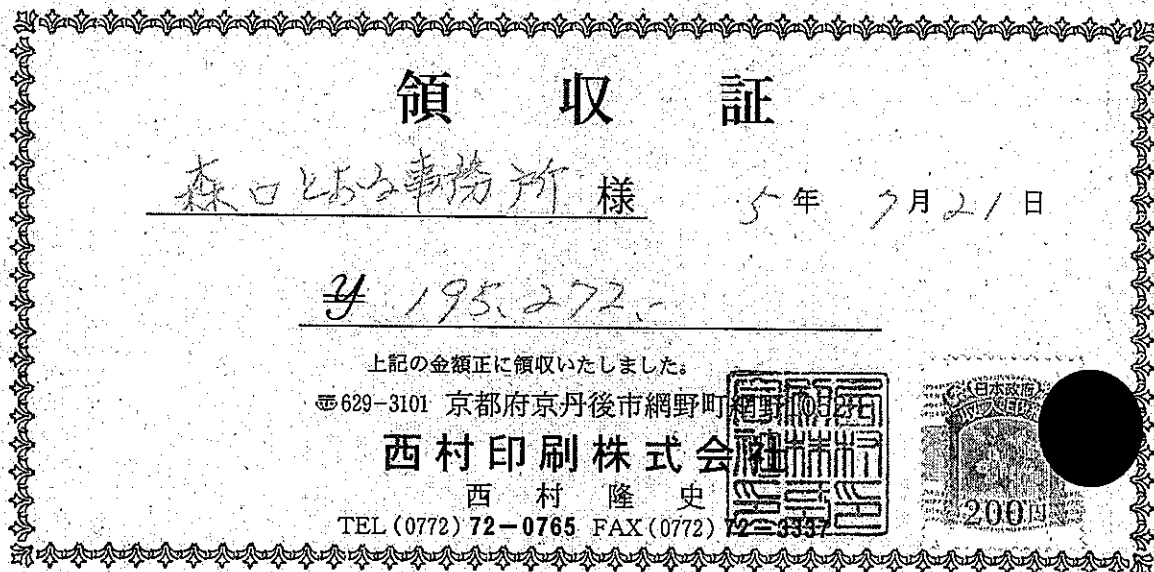 領収証
森口とおる事務所 様 5年 7月21日
¥ 195,272.-
上記の金額正に領収いたしました。
〠629-3101 京都府京丹後市網野町網野
西村印刷株式会社
西村隆史
TEL(0772)72-0765 FAX(0772)72-3337
日本政府
収入印紙
200円